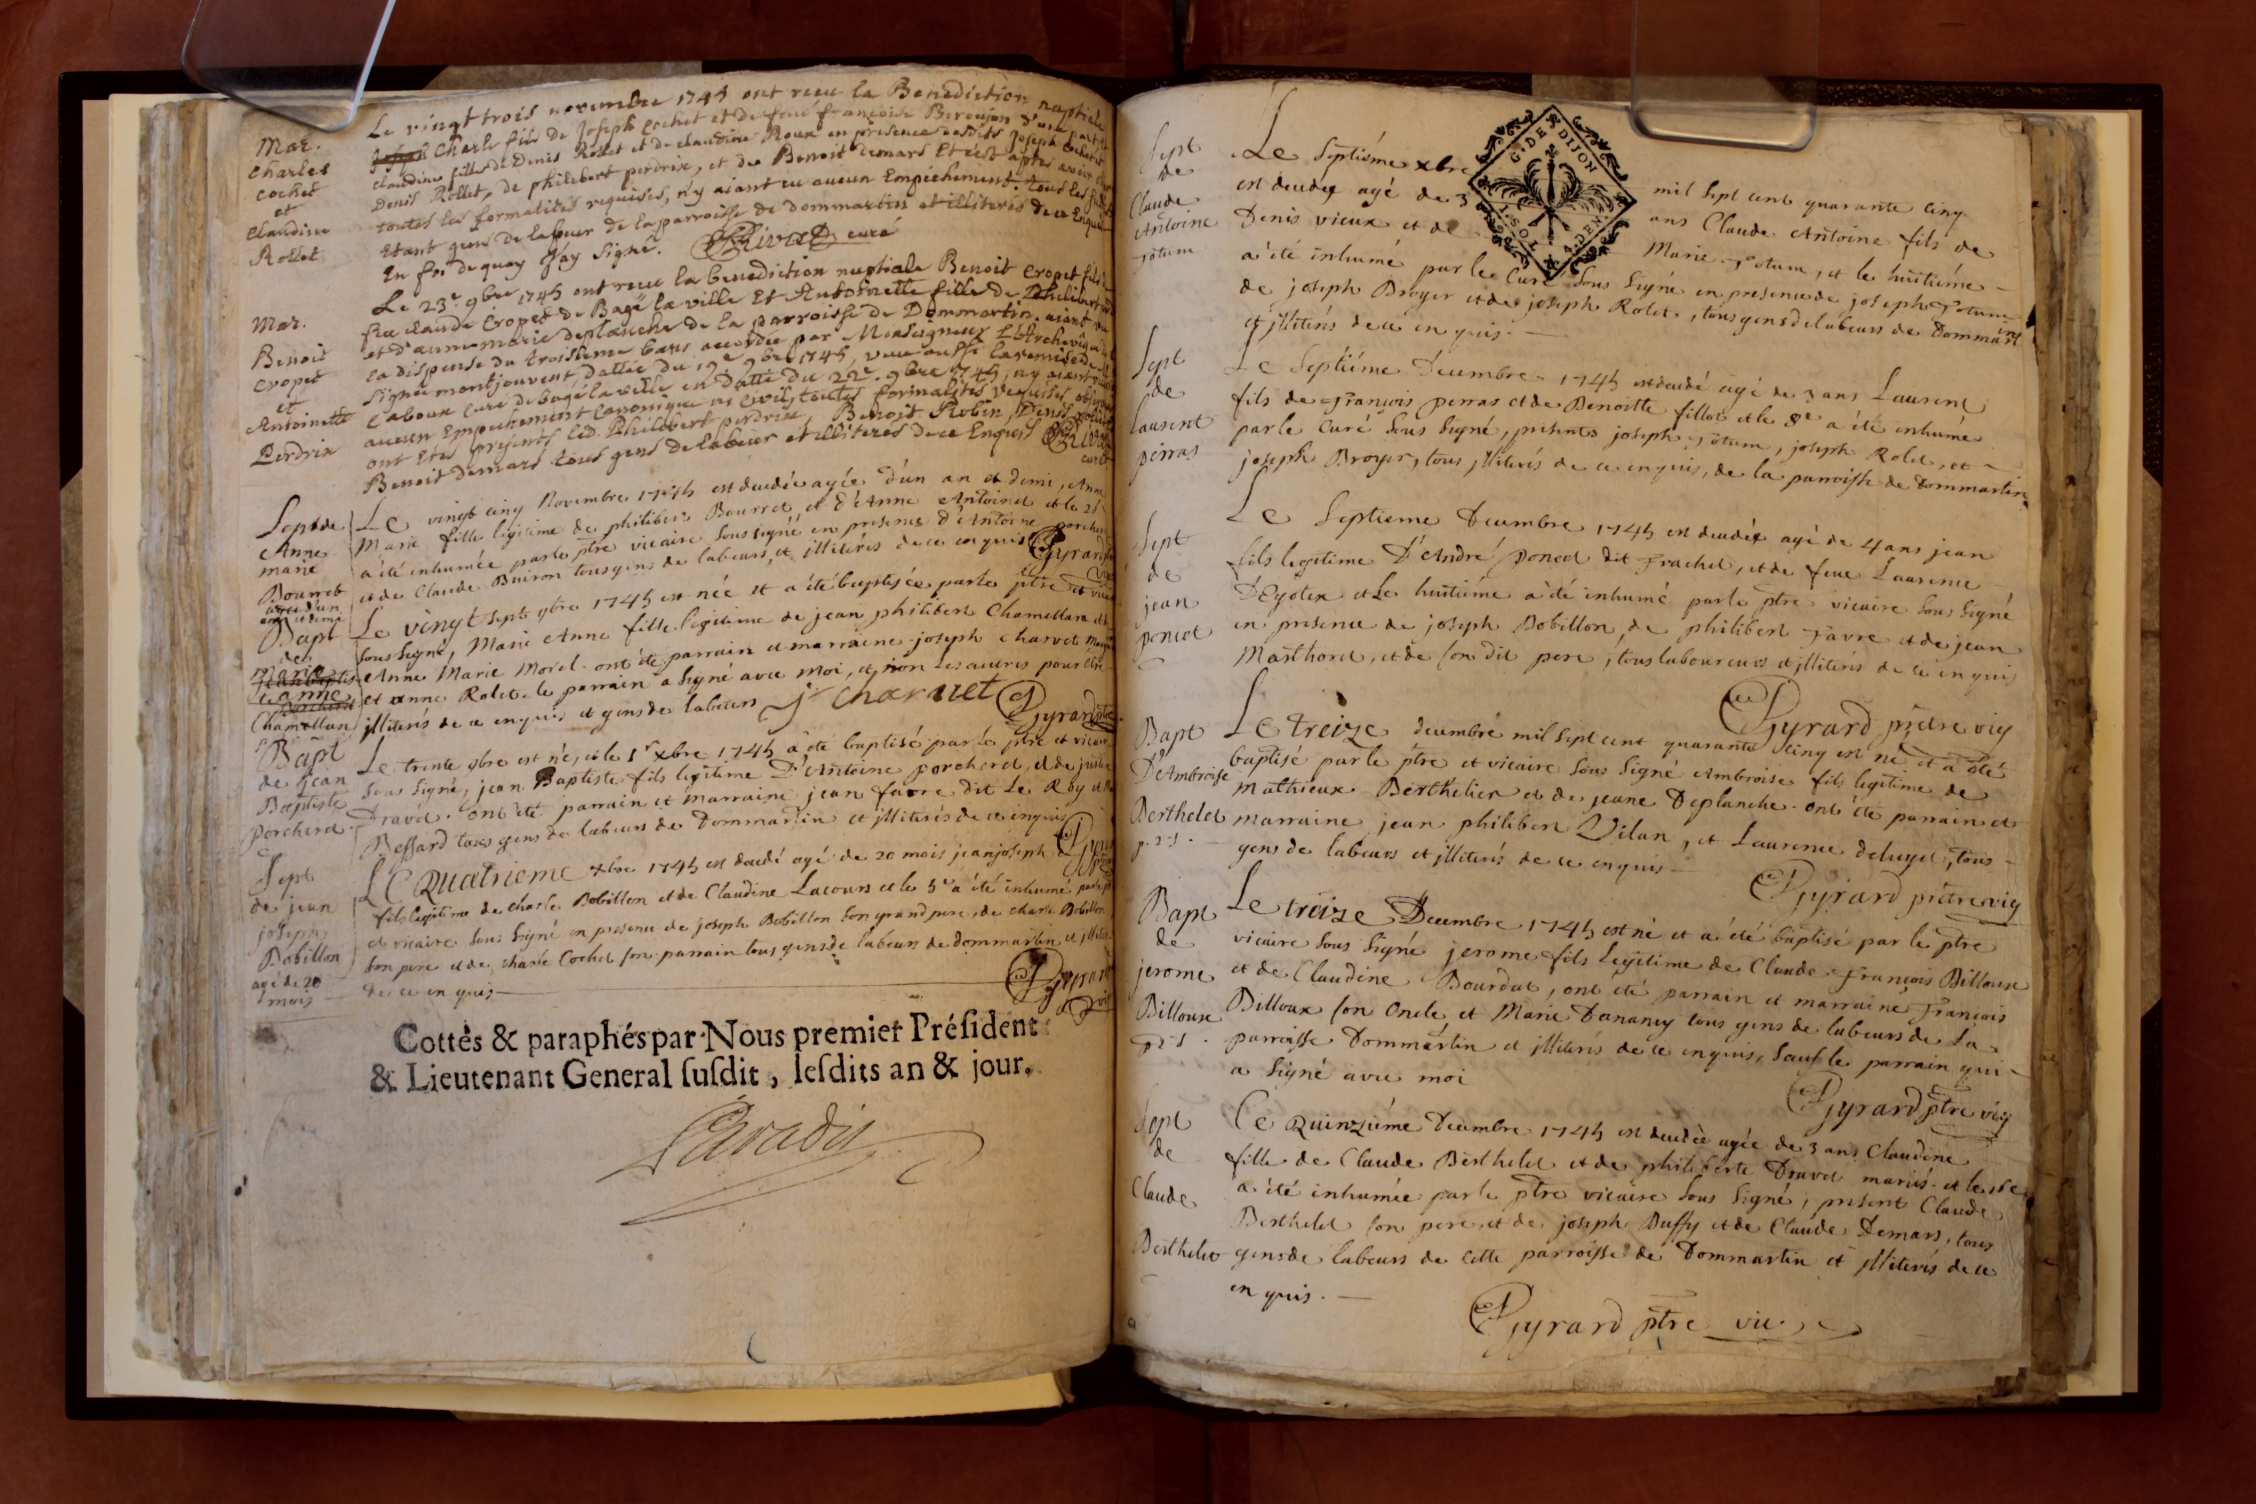 Mar.
Charles
cochet
et
claudine
Rollet
Le vingt trois novembre 1745 ont reçu la Benediction nuptiale
Charle fils de Joseph cochet et de feüe françoise Beroujon d'une part et
claudine fille de Denis Rollet et de claudine Roux en présence desdits Joseph cochet
Denis Rollet, de philibert perdrix, et de Benoit demars Et c'est aprés avoir
toutes les formalités requises, n'y aiant eu aucun Empechement. tous les
Etant gens de labeur de la parroisse de dommartin et illiterés de ce Enquis
En foi de quoy J'ay signé. Rivat curé
Mar.
Benoit
cropet
et
Antoinette
Perdrix
Le 23e. 9bre 1745 ont reçu la benediction nuptiale Benoit cropet fils
feu claude cropet de Bagé la ville Et Antoinette fille de Philibert
et d'anne marie deplanche de la parroisse de Dommartin, aiant
la dispense du troisieme bans accordée par Monseigneur L'Archeveque
signée montjouvent dattée du 19e 9bre 1745, veüe aussi la remise de
caboux curé de bagé la ville en datte du 22e. 9bre 1745, n'y aiant
aucun Empechement canonique ni civil, toutes formalités requises
ont Etés presents led. Philibert perdrix, Benoit Robin, Denis
Benoit demars tous gens de labeur et illiteres de ce Enquis Rivat
curé
Sept de
Anne
marie
Bourret
agée d'un
an et demi
Le vingt cinq Novembre 1745 est decedée agée d'un an et demi, Anne
Marie fille legitime de philibert Bourret, et d'Anne Antoinet et le 26
a été inhumée par le ptre vicaire sous signé en presence d'Antoine porcheret
et de Claude Buiron tous gens de labeurs, et illiterés de ce enquis Gyrard
Bapt
de
marie
anne
Chamellan
Le vingt sept 9bre 1745 est née et a été baptisée par le ptre et vicaire
sous signé, Marie Anne fille legitime de jean philibert Chamellan et
d'Anne Marie Morel. ont été parrain et marraine joseph charvet
et anne Rolet. le parrain a signé avec moi, et non les autres pour être
illiterés de ce enquis et gens de labeurs j. charvet Gyrard ptre
Bapt
de jean
Baptiste
porcheret
Le trente 9bre est né, et le 1er xbre 1745 a été baptisé par le ptre et vicaire
sous signé, jean Baptiste fils legitime D'Antoine porcheret, et de
Dravet. ont été parrain et marraine jean favre dit Le Roy et
Bessard tous gens de labeurs de Dommartin et illiterés de ce inquis
Sept
de jean
joseph
Bobillon
agé de 20
mois
Le Quatrieme xbre 1745 est decedé agé de 20 mois jean joseph
fils legitime de charle Bobillon et de Claudine Lacours et le 5e a été inhumé par le ptre
et vicaire sous signé en presence de joseph Bobillon son grand pere, de charle Bobillon
son pere et de charle Cochet son parrain tous gens de labeurs de dommartin et illiterés
de ce enquis Gyrard
Cottés & paraphés par Nous premier Préſident
& Lieutenant General ſuſdit, leſdits an & jour.
Paradis
G. DE DIJON
Sept
de
Claude
Antoine
Fotum
Le septiéme xbre mil sept cent quarante cinq
est decedé agé de 3 ans Claude Antoine fils de
Denis vieux et de Marie Fotum, et le huitiéme
a été inhumé par le Curé sous signé en presence de joseph Fotum
de joseph Broyer et de joseph Rolet, tous gens de labeurs de Dommartin
et illiterés de ce enquis.
Sept
de
laurent
perras
Le Septiéme Decembre 1745 est decedé agé de 3 ans Laurent
fils de François perras et de Benoitte fillot et le 8e a été inhumé
par le Curé sous signé, presents joseph Fotum, joseph Rolet, et
joseph Broyer, tous illiterés de ce enquis, de la parroisse de Dommartin
Sept
de
jean
poncet
Le Septieme Decembre 1745 est decedé agé de 4 ans jean
fils legitime D'André poncet dit Frachet, et de feue Laurence
D'Egolex et Le huitiéme a été inhumé par le ptre vicaire sous signé
en presence de joseph Bobillon, de philibert Favre et de jean
Masthoret, et de son dit pere, tous laboureurs et illiterés de ce inquis
Gyrard prêtre vic
Bapt
D'Ambroise
Berthelet
Le treize decembre mil sept cent quarante cinq est né et a été
baptisé par le ptre et vicaire sous signé Ambroise fils legitime de
Mathieux Berthelier et de jeane Deplanche. ont été parrain et
marraine jean philibert Vilan, et Laurence deluget, tous
gens de labeurs et illiterés de ce enquis
Gyrard prêtre vic
Bapt
de
jerome
Billoux
Le treize Decembre 1745 est né et a été baptisé par le ptre
vicaire sous signé jerome fils Legitime de Claude François Billoux
et de Claudine Bourdat, ont été parrain et marraine François
Billoux son oncle et Marie Danancy tous gens de labeurs de La
parroisse Dommartin et illiterés de ce enquis, sauf le parrain qui
a signé avec moi
Gyrard ptre vic
Sept
de
Claude
Berthelet
Le Quinziéme Decembre 1745 est decedée agée de 3 ans Claudine
fille de Claude Berthelet et de philiberte Dravet mariés. et le 16e
a été inhumée par le ptre vicaire sous signé, present Claude
Berthelet son pere, et de joseph Buffy et de Claude Demars, tous
gens de labeurs de cette parroisse de Dommartin et illiterés de ce
enquis.
Gyrard ptre vic